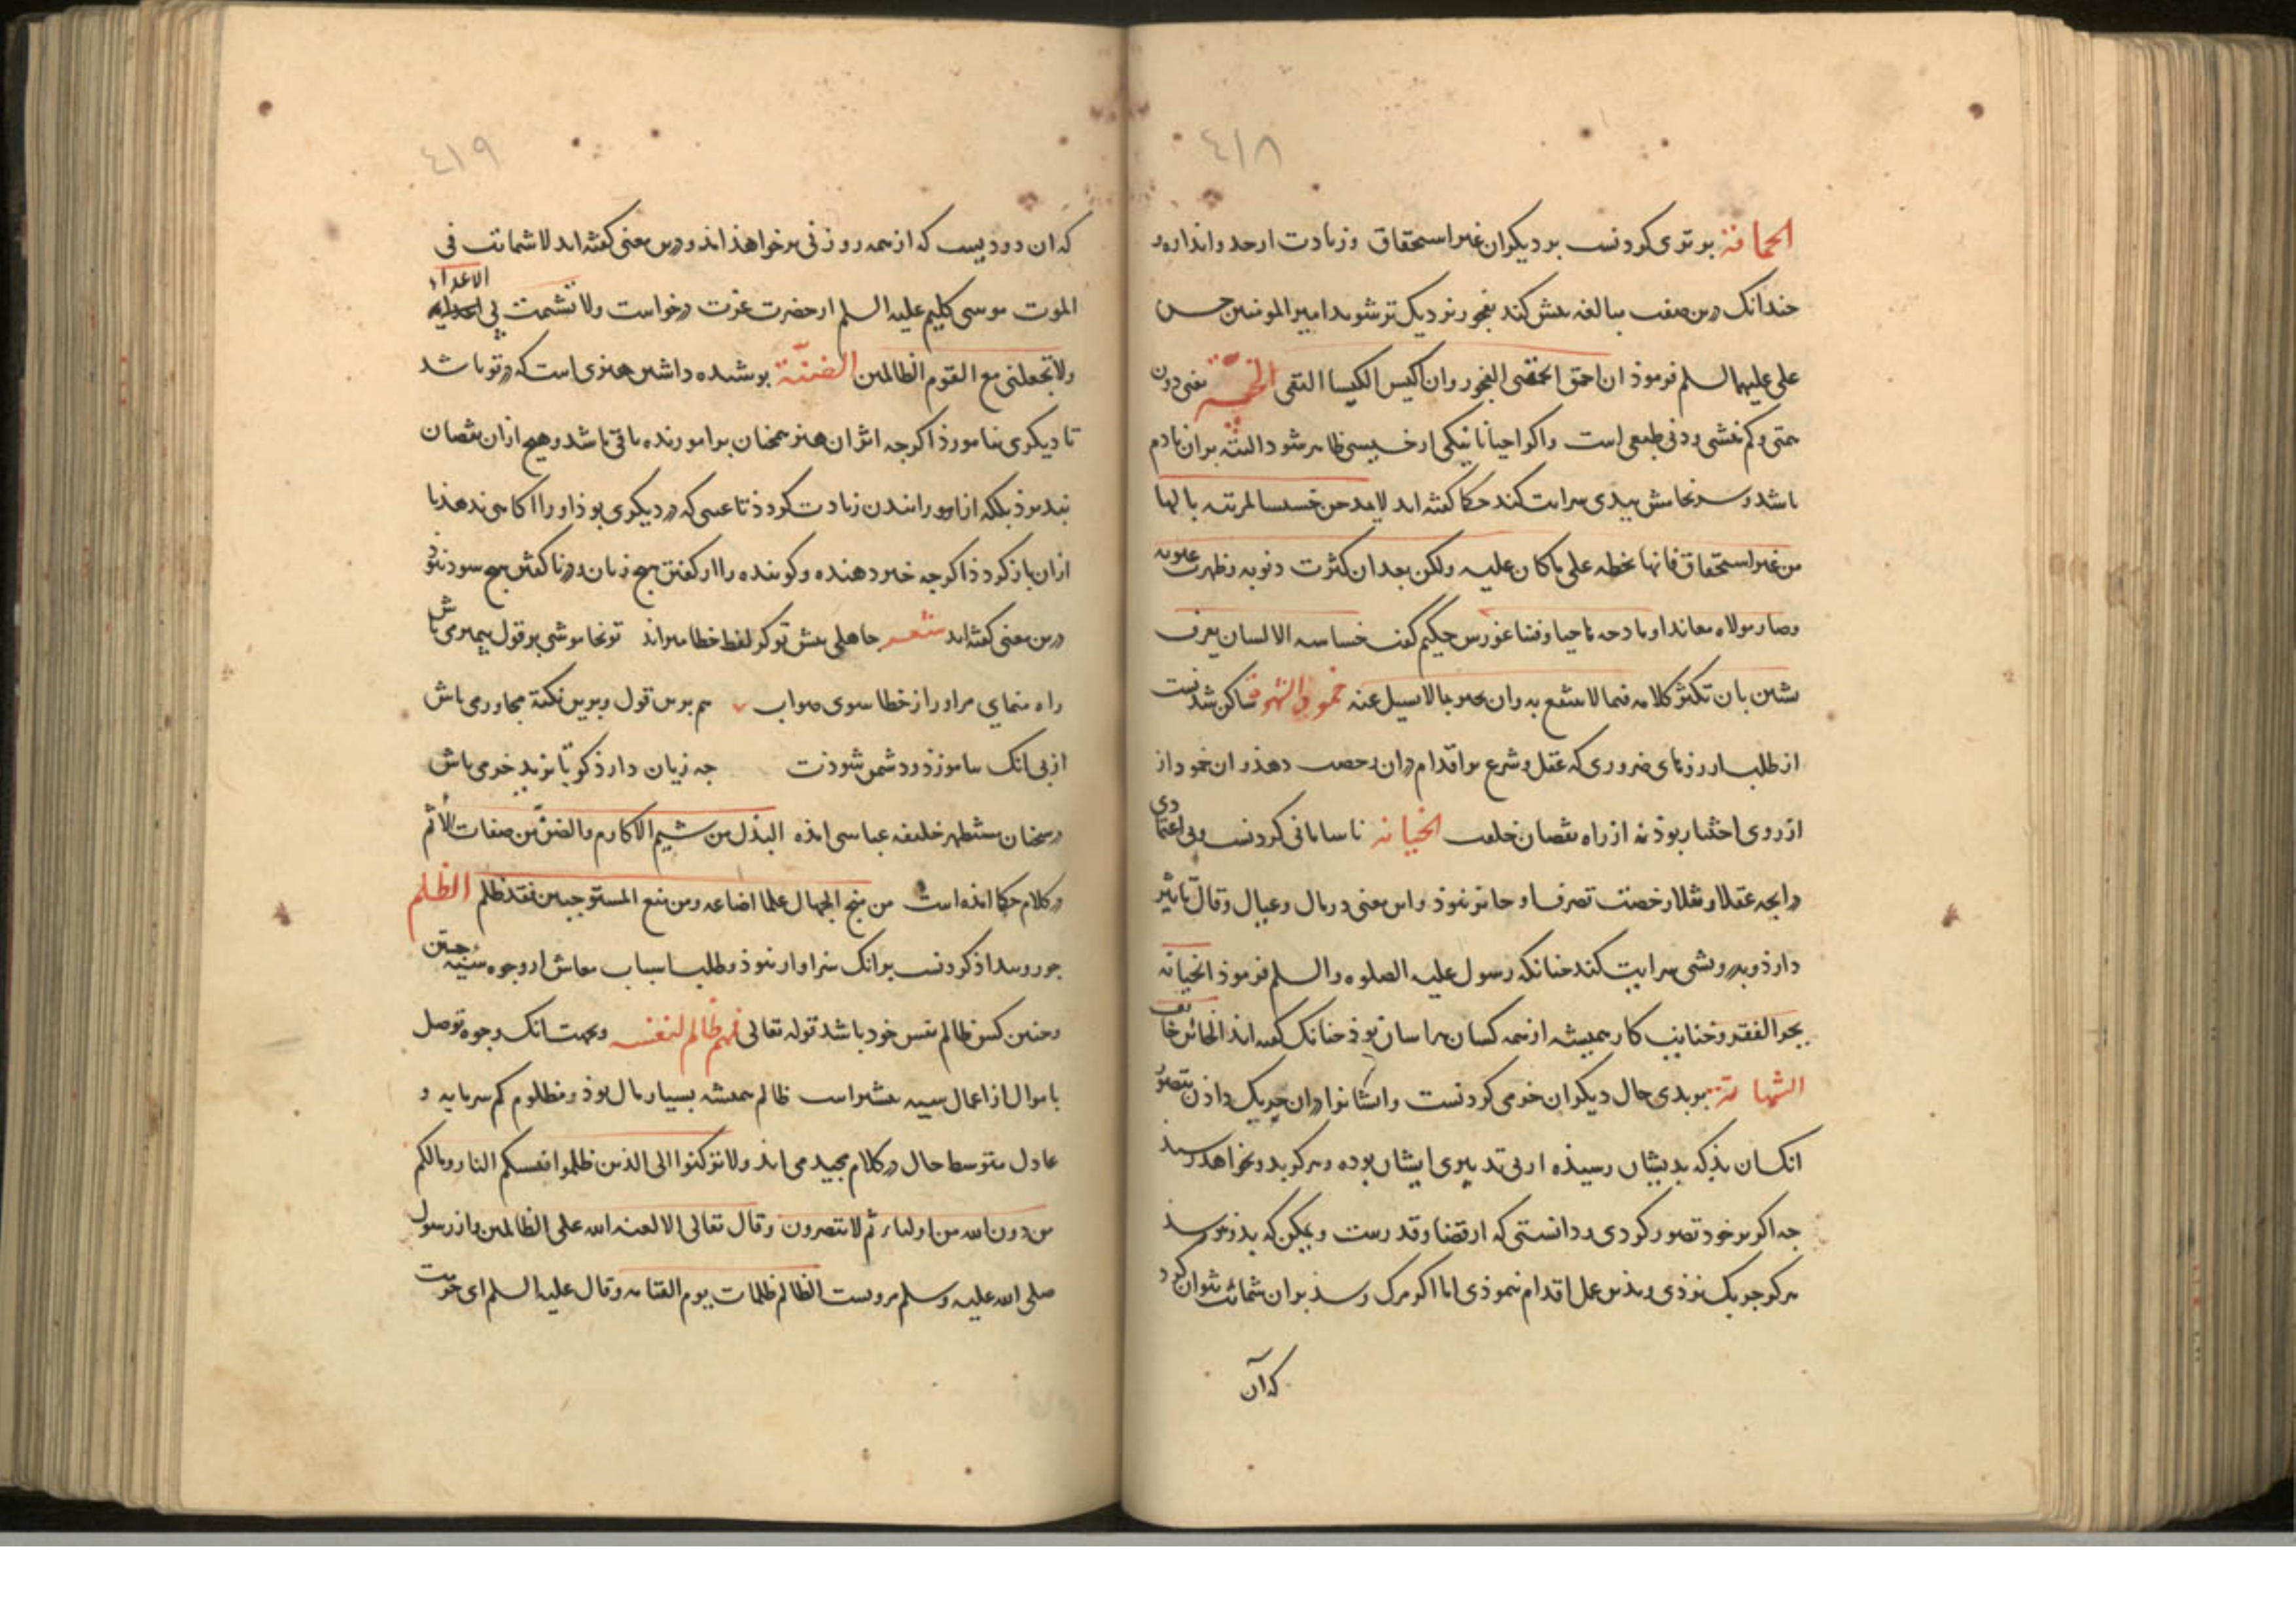 ٤١٨
الحماقة برتری کردنست بر دیگران غیر استحقاق و زیادت از حد و اندازه و
جندانک درین صفت مبالغه بیش کند بفجور نزدیک تر شود امیر المومنین حسن
علی علیهما السلم فرموذ ان احمق الحمقی الفجور وان اکیس الکیسا التقی الخسة یعنی دون
همتی و کم بخشی و دنی طبعی است و اکر احیانا نیکی از خسیسی ظاهر شود البته بران نادم
باشد و سرنجامش ببدی سرایت کند حکما کفته اند لا یمدحن خسیسا لمرتبه نالها
من غیر استحقاق فانها تحطه علی ما کان علیه ولکن بعد ان کثرت ذنوبه وظهرت عیوبه
وصار مولاه معاندا ومادحه هاجیا حکیم کفت خساسه الانسان یعرف
بشین بان تکثر کلامه فیما لا ینتفع به وان یخبر بما لا یسیل عنه خمود الشهوة ساکن شدنست
از طلب ارزوهای ضروری که عقل و شرع بر اقدام دران رخصت دهذ و ان خمود از
از روی اختیار بوذ نه از راه نقصان خلقت الخیانه ناسامانی کردنست و بی اعتمادی
درانجه عقلا و نقلا رخصت تصرف او جایز نبوذ و این معنی در مال و عیال و قال تاثیر
دارذ و بدرویشی سرایت کند جنانکه رسول علیه الصلوه والسلم فرموذ الخیانه
یجر الفقر و خاین کار همیشه از همه کسان هراسان بوذ جنانک کفته اند الخائن خائف
الشماتة ببدی حال دیگران خرمی کردنست و ایشانرا دران جریک داذن بتصور
انک ان بذ که بدیشان رسیذه از بی تدبیری ایشان بوده و هرکز بدو نخواهد رسیذ
جه اکر بر خود تصور کردی و دانستی که از قضا و قدرست و یمکن که بذو هم رسذ
هرکز جریک نزذی و بذین عمل اقدام ننموذی اما اکر مرک رسذ بران شماتت نتوان کرد
که آن
٤١٩
که ان دودیست که از همه روزنی بر خواهذ امذ و درین معنی کفته اند لا شماتت فی
الموت موسی کلیم علیه السلم از حضرت عزت درخواست ولا تشمت بی الاعداء
ولا تجعلنی مع القوم الظالمین الضنّة بوشیده داشتن هنری است که در تو باشد
تا دیگری نیاموزذ اکرجه اثر ان هنر همجنان بر اموزنده باقی باشد و هیج ازان نقصان
نبذیرذ بلکه از اموزانیدن زیادت کردذ تا عیبی که در دیگری بوذ او را اکاهی ندهذ تا
ازان باز کردذ اکرجه خبر دهنده و کوینده را از کفتن هیج زیان و در ناکفتن هیج سود نبوذ
درین معنی کفته اند شعر جاهلی بیش تو کر لفظ خطا میراند تو نخاموشی بر قول بیمبر می باش
راه بنمای مر او را از خطا سوی صواب هم برین قول و برین نکتة مجاور می باش
از بی انک بیاموزذ و دشمن شوذت جه زیان دارذ کو تا بزید خر می باش
در سخنان مستظهر خلیفه عباسی امذه البذل من شیم الاکارم والضن من صفات الألائم
در کلام حکما امذه است من منح الجهال علما اضاعه ومن منع المستوجبین فقد ظلم الظلم
جور و بیداذ کردنست برانک سزاوار نبوذ و طلب اسباب معاش از وجوه سیئه جستن
و جنین کس ظالم نفس خود باشد قوله تعالی فمنهم ظالم لنفسه و بجهت انک وجوه توصل
باموال از اعمال سیئه بیشتر است ظالم همیشه بسیار مال بوذ و مظلوم کم سرمایه و
عادل متوسط حال در کلام مجید می اید ولا ترکنوا الی الذین ظلموا فتمسکم النار ومالکم
من دون الله من اولیاء ثم لا تنصرون وقال تعالی الا لعنه الله علی الظالمین و از رسول
صلی الله علیه وسلم مرویست الظالم ظلمات یوم القیامه وقال علیه السلم ای